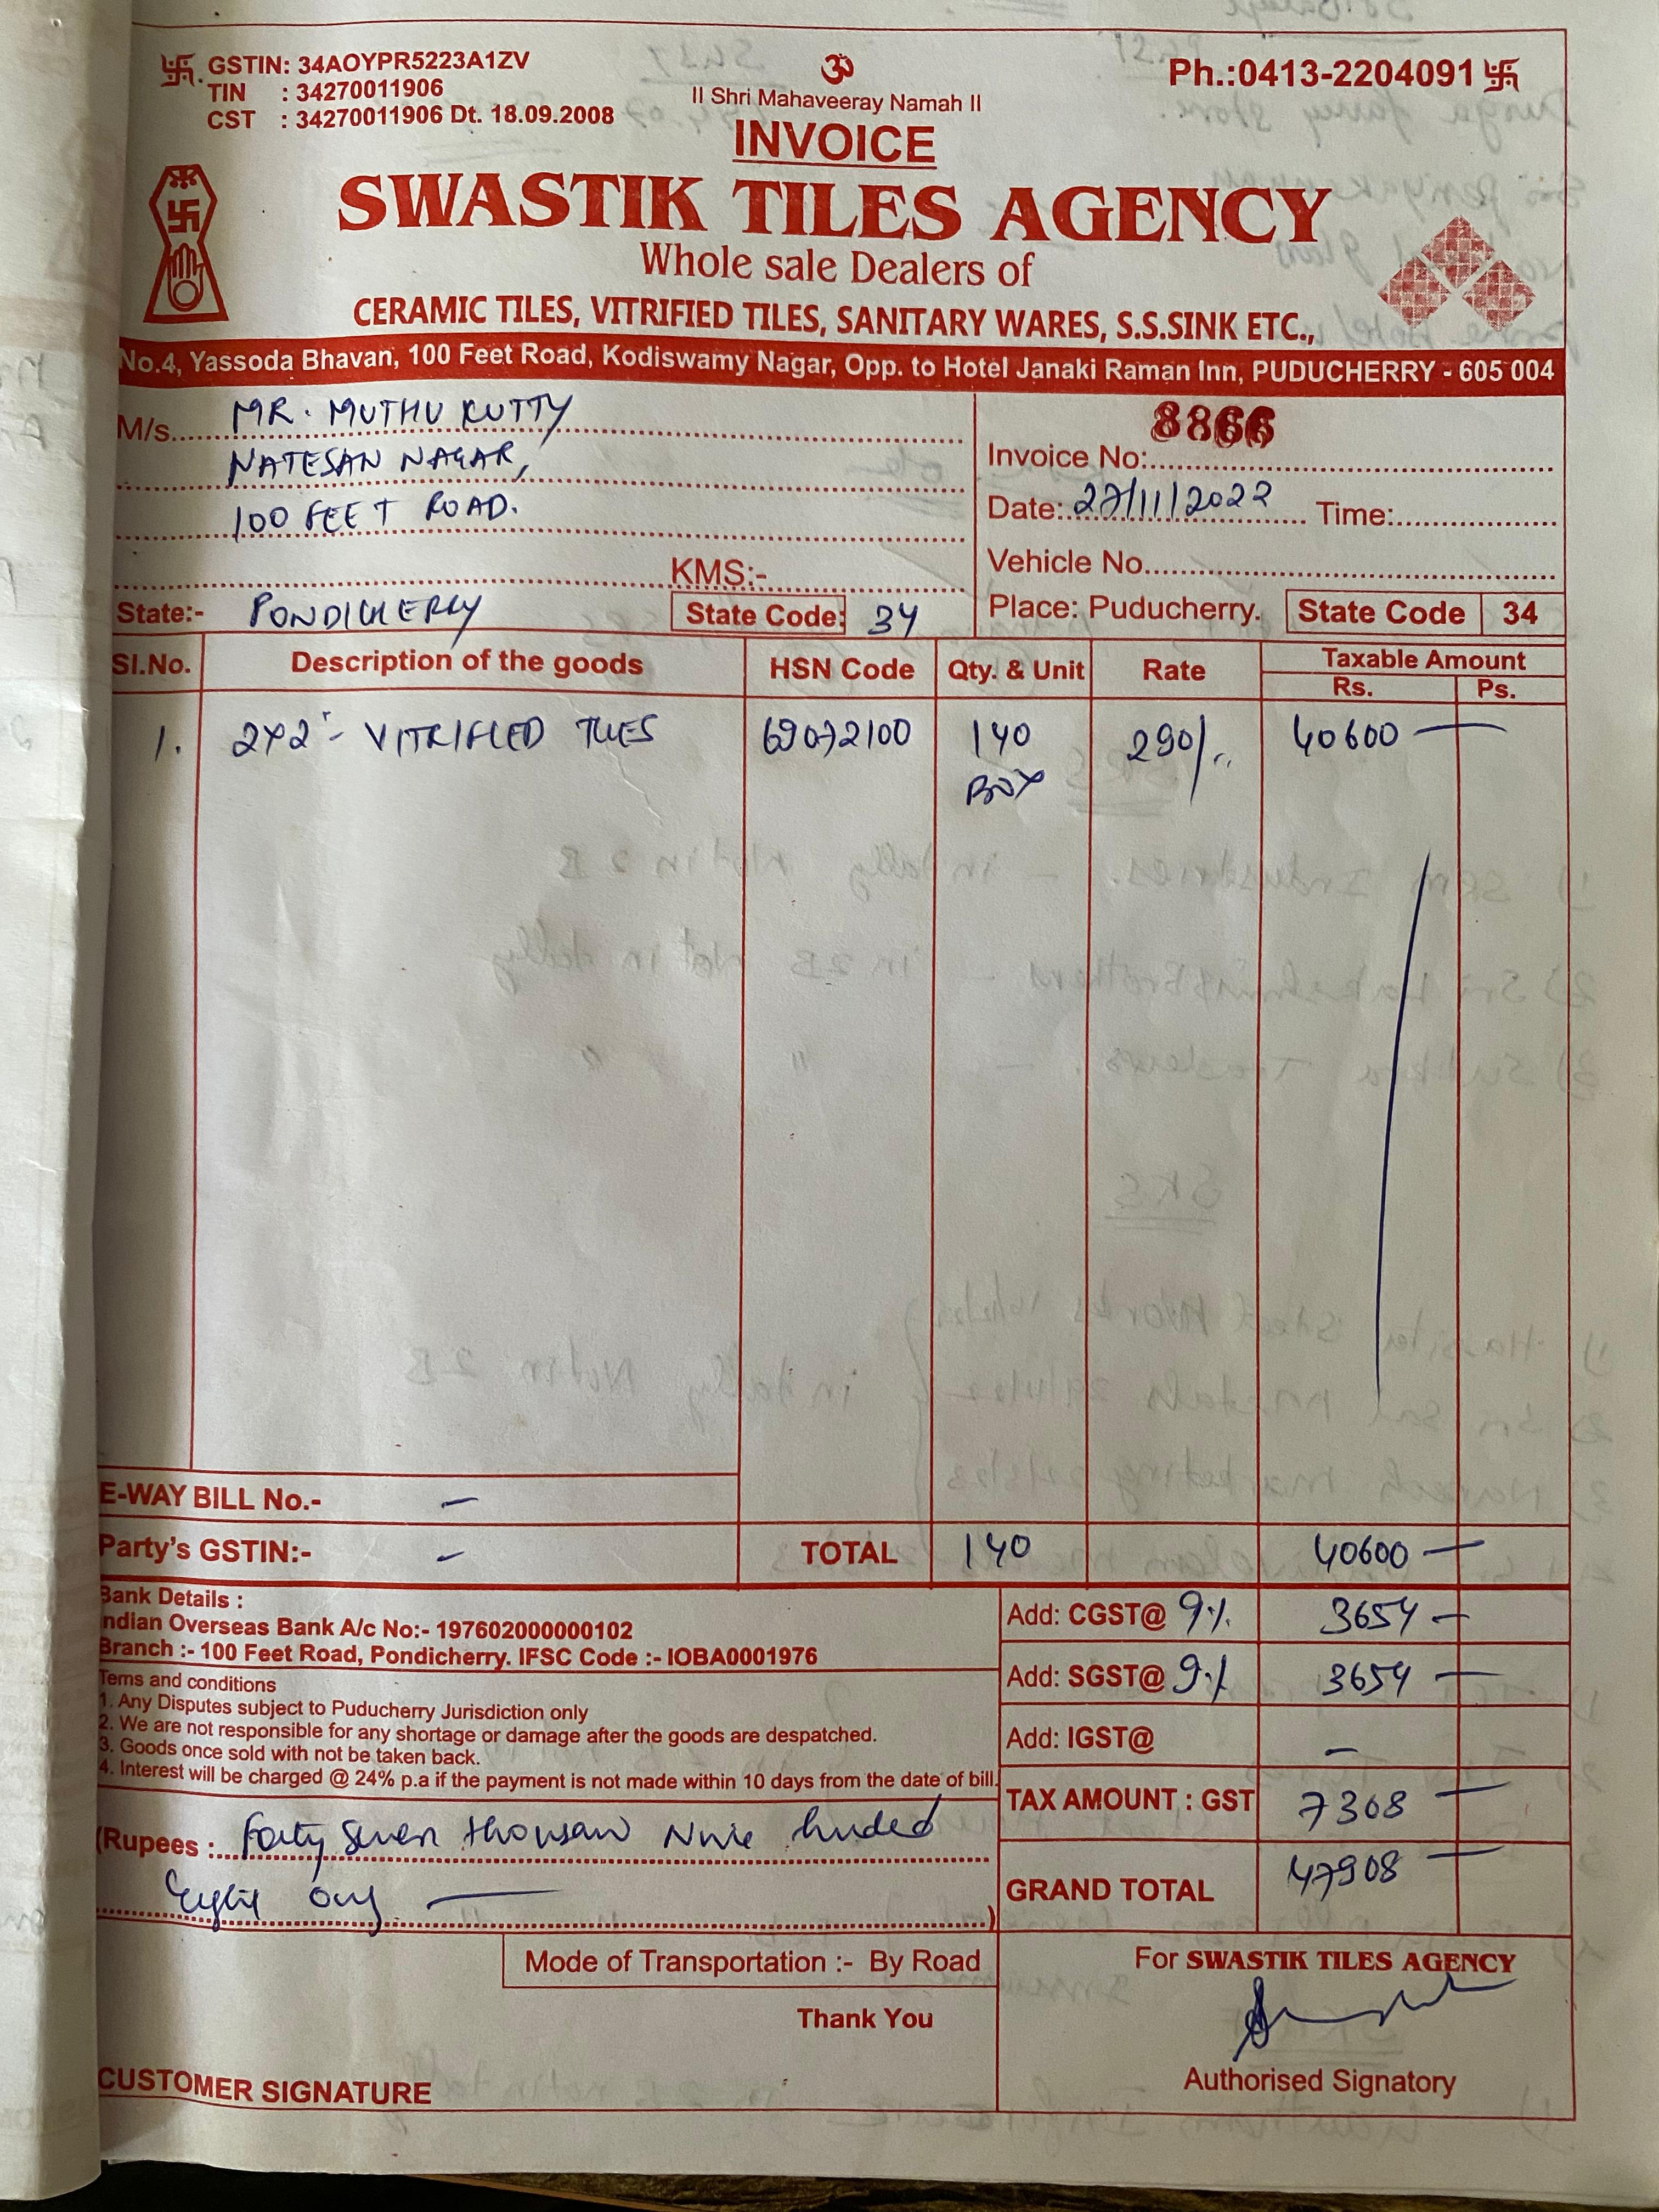 GSTIN: 34AOYPR5223A1ZV
TIN : 34270011906
CST : 34270011906 Dt. 18.09.2008
ॐ
II Shri Mahaveeray Namah II
Ph.:0413-2204091
INVOICE
SWASTIK TILES AGENCY
Whole sale Dealers of
CERAMIC TILES, VITRIFIED TILES, SANITARY WARES, S.S.SINK ETC.,
No.4, Yassoda Bhavan, 100 Feet Road, Kodiswamy Nagar, Opp. to Hotel Janaki Raman Inn, PUDUCHERRY - 605 004
M/s. MR. MUTHU KUTTY
NATESAN NAGAR,
100 FEET ROAD.
KMS:-
State:- PONDICHERRY State Code: 34
8866
Invoice No:
Date: 27/11/2022 Time:
Vehicle No.
Place: Puducherry. State Code 34
SI.No. Description of the goods HSN Code Qty. & Unit Rate Taxable Amount
Rs. Ps.
1. 2x2 - VITRIFIED TILES 69072100 140 290/.. 40600 —
BOX
E-WAY BILL No.- –
Party's GSTIN:- – TOTAL 140 40600 —
Bank Details :
Indian Overseas Bank A/c No:- 197602000000102
Branch :- 100 Feet Road, Pondicherry. IFSC Code :- IOBA0001976
Tems and conditions
1. Any Disputes subject to Puducherry Jurisdiction only
2. We are not responsible for any shortage or damage after the goods are despatched.
3. Goods once sold with not be taken back.
4. Interest will be charged @ 24% p.a if the payment is not made within 10 days from the date of bill.
Add: CGST@ 9% 3654 —
Add: SGST@ 9% 3654 —
Add: IGST@ –
TAX AMOUNT : GST 7308 —
GRAND TOTAL 47908 —
(Rupees : Forty Seven thousan Nine huded
Eight Only —)
Mode of Transportation :- By Road
Thank You
CUSTOMER SIGNATURE
For SWASTIK TILES AGENCY
Authorised Signatory